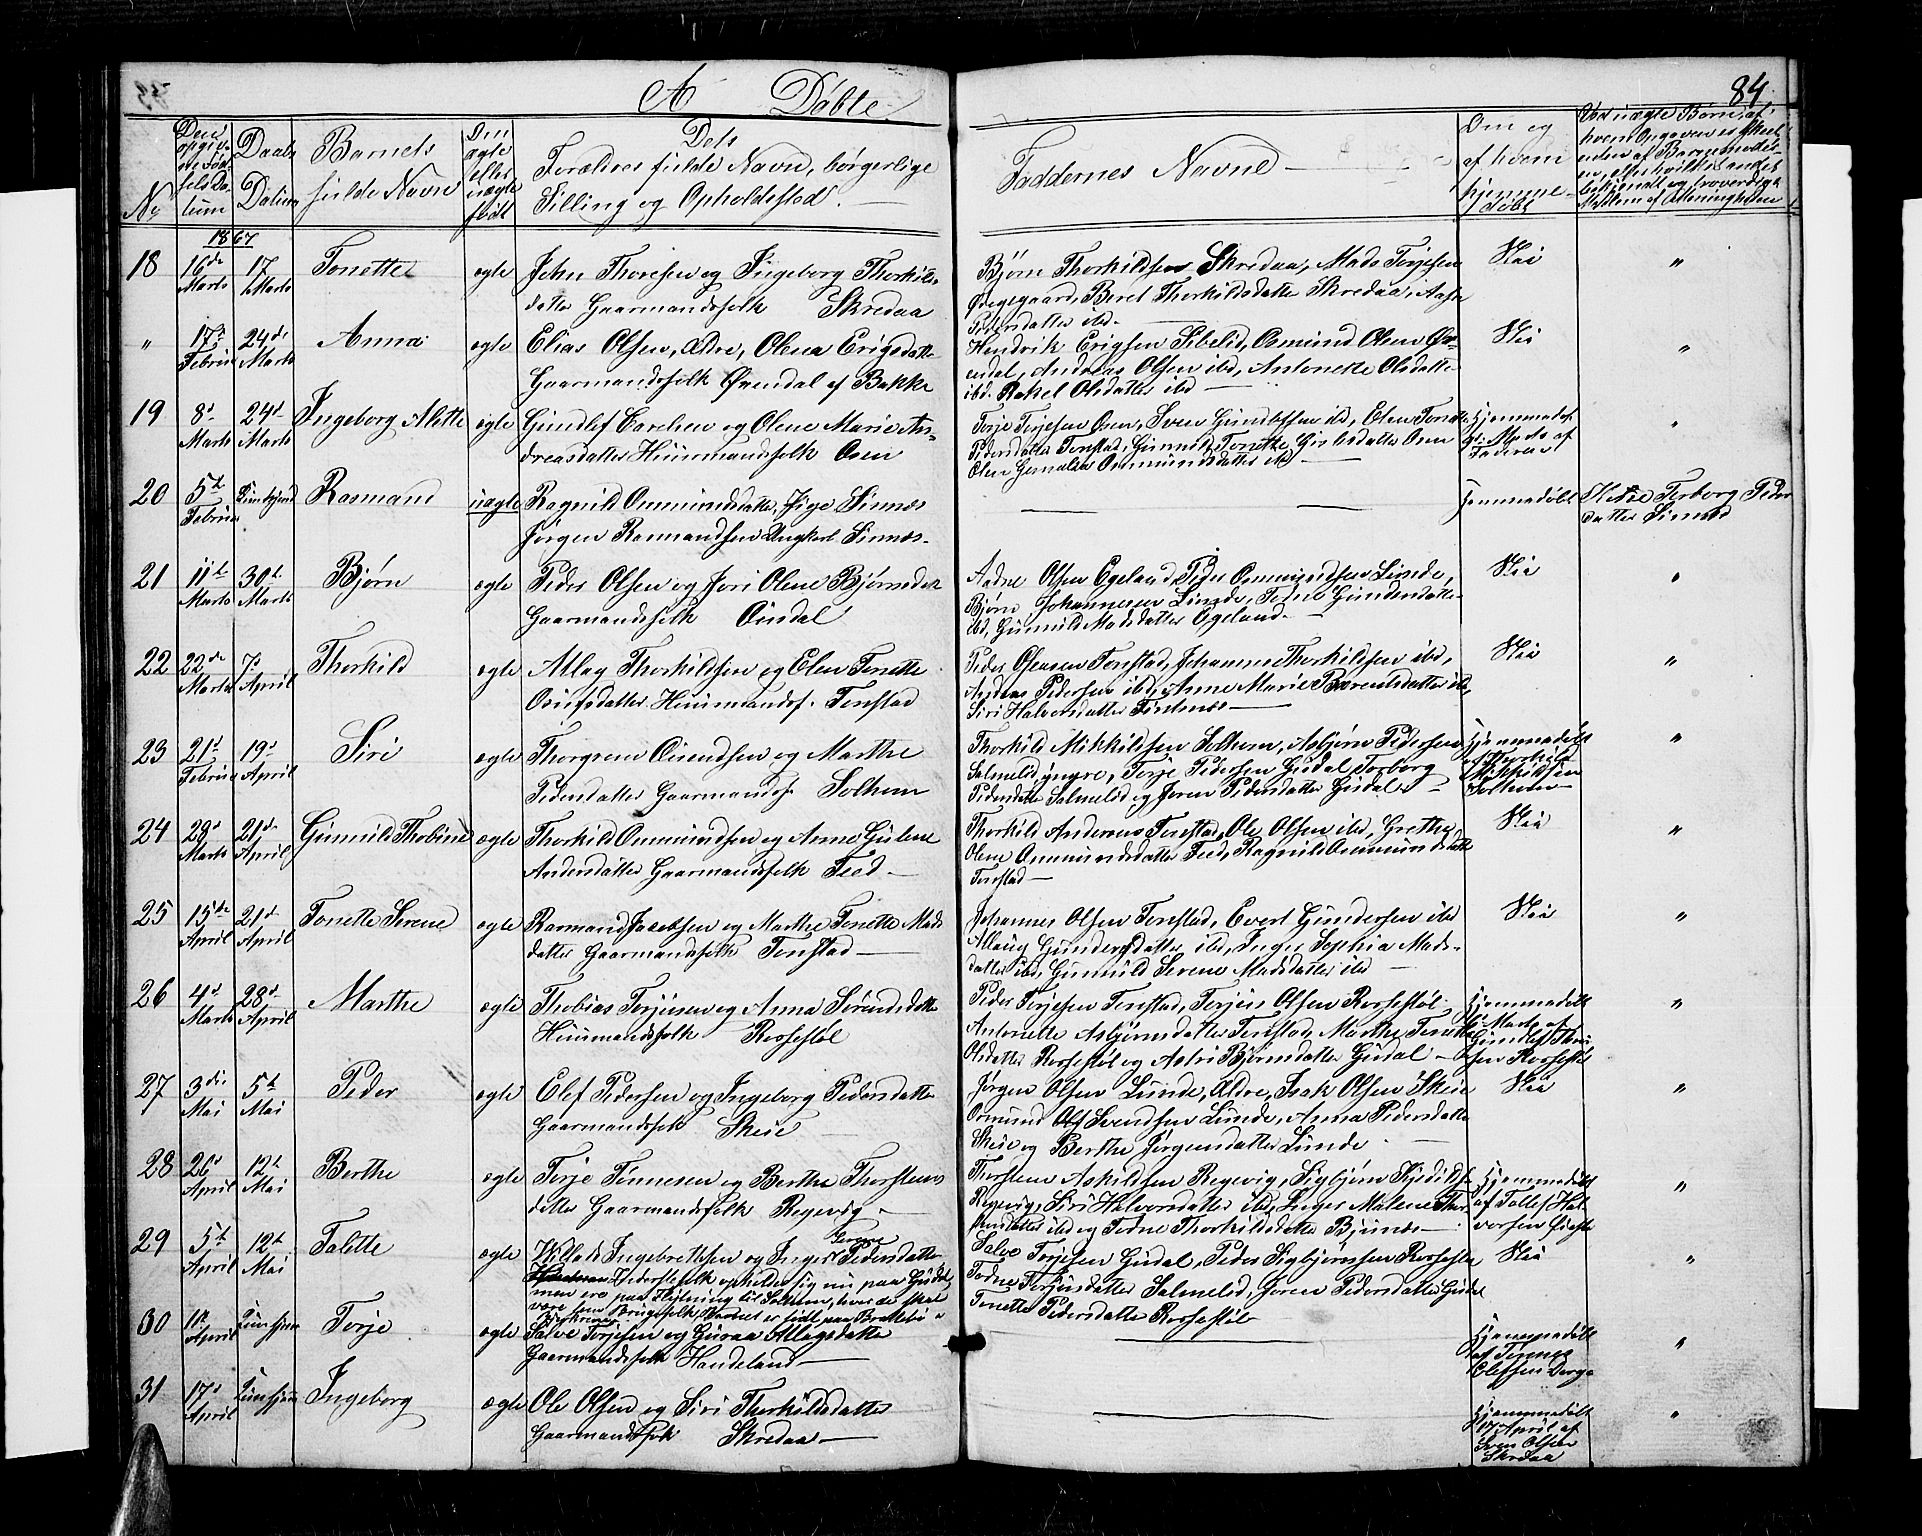 A Døbte
84
No
Den opgivne Fødselsdatum
Daabs Datum
Barnets fulde Navn
Om ægte eller uægte født
Dets Forældres fulde Navn, borgerlige Stilling og Opholdssted.
Faddernes Navne
Om og af hvem hjemmedøbt
1867
18 16de Marts 17 Marts Tonette ægte John Thoresen og Ingeborg Thorkilsdatter Gaarmandsfolk Skredaa
Bjørn Thorkildsen Skredaa, Mads Torjesen Øvregaard, Beret Thorkildsdatter Skredaa, Aaste Pedersdatter ibd. Nei "
" 17de Februar 24de Marts Anna ægte Elias Olsen, Ældre, Olena Erigsdatter Gaarmandsfolk Øvendal af Bakke
Hendrik Erigsen Sibelid, Osmund Olsen Øvendal, Andreas Olsen ibd, Antonette Olsdatter ibd. Rakel Olsdatter ibd Nei "
19 8d Marts 24d Marts Ingeborg Alette ægte Gundlef Carelsen og Olene Marie Andreasdatter Huusmandsfolk Osen
Torje Torjesen Osen, Sven Gundlefsen ibd, Elen Tonette Pedersdatter Tonstad, Gunnild Tonette Osen
Hjemmedøbt Marts af Faderen "
20 5te Februar Rasmand uægte Ragnild Ommundsdatter, Pige Sinnes
Jørgen Rasmandsen Ungkarl Sinnes
Hjemmedøbt Torborg Pedersdatter Sinnes
21 11te Marts 30te Marts Bjørn ægte Peder Olsen og Jori Olene Bjørnsdatter
Gaarmandsfolk Ousdal
Aadne Olsen Egeland, Peder Ommundsen Lunde, Bjørn Johannesen Lunde, Todne Gundersdatter ibd, Gunnild Madsdatter Egeland. Nei "
22 22de Marts 7d April Thorkild ægte Atlag Thorkildsen og Elen Tonette
Osufsdatter Huusmandsf. Tonstad
Peder Tonstad, Johannes Thorkildsen ibd, Andreas Pedersen ibd, Anne Marie Berentsdatter ibd, Siri Halvorsdatter Nei "
23 21d Februar 19d April Siri ægte Thorgrem Eivindsen og Marthe
Pedersdatter Gaarmandsf Solhom
Thorkild Mikkildsen Solhom, Asbjørn Pedersen Salmelid, yngre, Torje Pedersen Gusdal, Torborg Pedersdatter Salmelid og Joren Pedersdatter Gusdal
Hjemmedøbt af Thorkild Mikkildsen Solhom "
24 23d Marts 21d April Gunnild Thobine ægte Thorkild Ommundsen og Anne Gulene
Andersdatter Gaarmandsfolk Feed
Thorkild Andersens Tonstad, Ole Olsen ibd, Grethe Olene Ommundsdatter Feed, Ragnild Ommundsdatter Tonstad Nei "
25 15de April 21d April Tonette Serene ægte Rasmand Jacobsen og Marthe Tonette Madsdatter Gaarmandsfolk Tonstad
Johannes Olsen Tonstad, Evert Gundersen ibd Allaug Gundersdatter ibd, Inger Sophia Madsdatter ibd, Gunnild Serene Madsdatter ibd Nei "
26 4d Marts 28d April Marthe ægte Thobias Torjusen og Anna Sørensdatter
Huusmandsfolk Rossestøl
Peder Torjesen Tonstad, Torjus Olsen Rossestøl Antonette Asbjørnsdatter Tonstad, Marthe Tonette Olsdatter Rossestøl og Astri Bjørnsdatter Gusdal
Hjemmedøbt Marts af Gundlef Rossestøl "
27 3die Mai 5te Mai Peder ægte Elef Pedersen og Ingeborg Pedersdatter
Gaarmandsfolk Skeie
Jørgen Olsen Lunde, Ældre, Isak Olsen Skeie Osmund Svendsen Lunde, Anna Pedersdatter Skeie og Berthe Jørgensdatter Lunde Nei "
28 26d April 12te Mai Berthe ægte Torje Tønnesen og Berthe Thorstensdatter Gaarmandsfolk Regevig
Thorsten Askildsen Regevig, Sigbjørn Regevig, Siri Halvorsdatter ibd, Inger Malene Thorstensdatter ibd og Todne Thorkildsdatter Bjunes
Hjemmedøbt af Tollef Halvorsen "
29 5te April 12te Mai Talette ægte Villads Ingebretsen og Inger Serene Pedersdatter
opholder sig nu paa Gusdal, men ere paa Flytning til Solhom, hvor de skal være Brugsfolk, Barnet er født paa
Salve Torjesen Gusdal, Peder Sigbjørnsen Rossestøl Todne Torjusdatter Salmelid, Joren Pedersdatter Gusdal Tonette Pedersdatter Rossestøl Nei "
30 April Torje ægte Salve Torjesen og Guroa Atlagsdatter
Gaarmandsfolk Handeland
Hjemmedøbt af Tønnes Elefsen "
31 17d April Ingeborg ægte Ole Olsen og Siri Thorkildsdatter
Gaarmandsfolk Skredaa
Hjemmedøbt 17 April af Sven Olsen Skredaa "